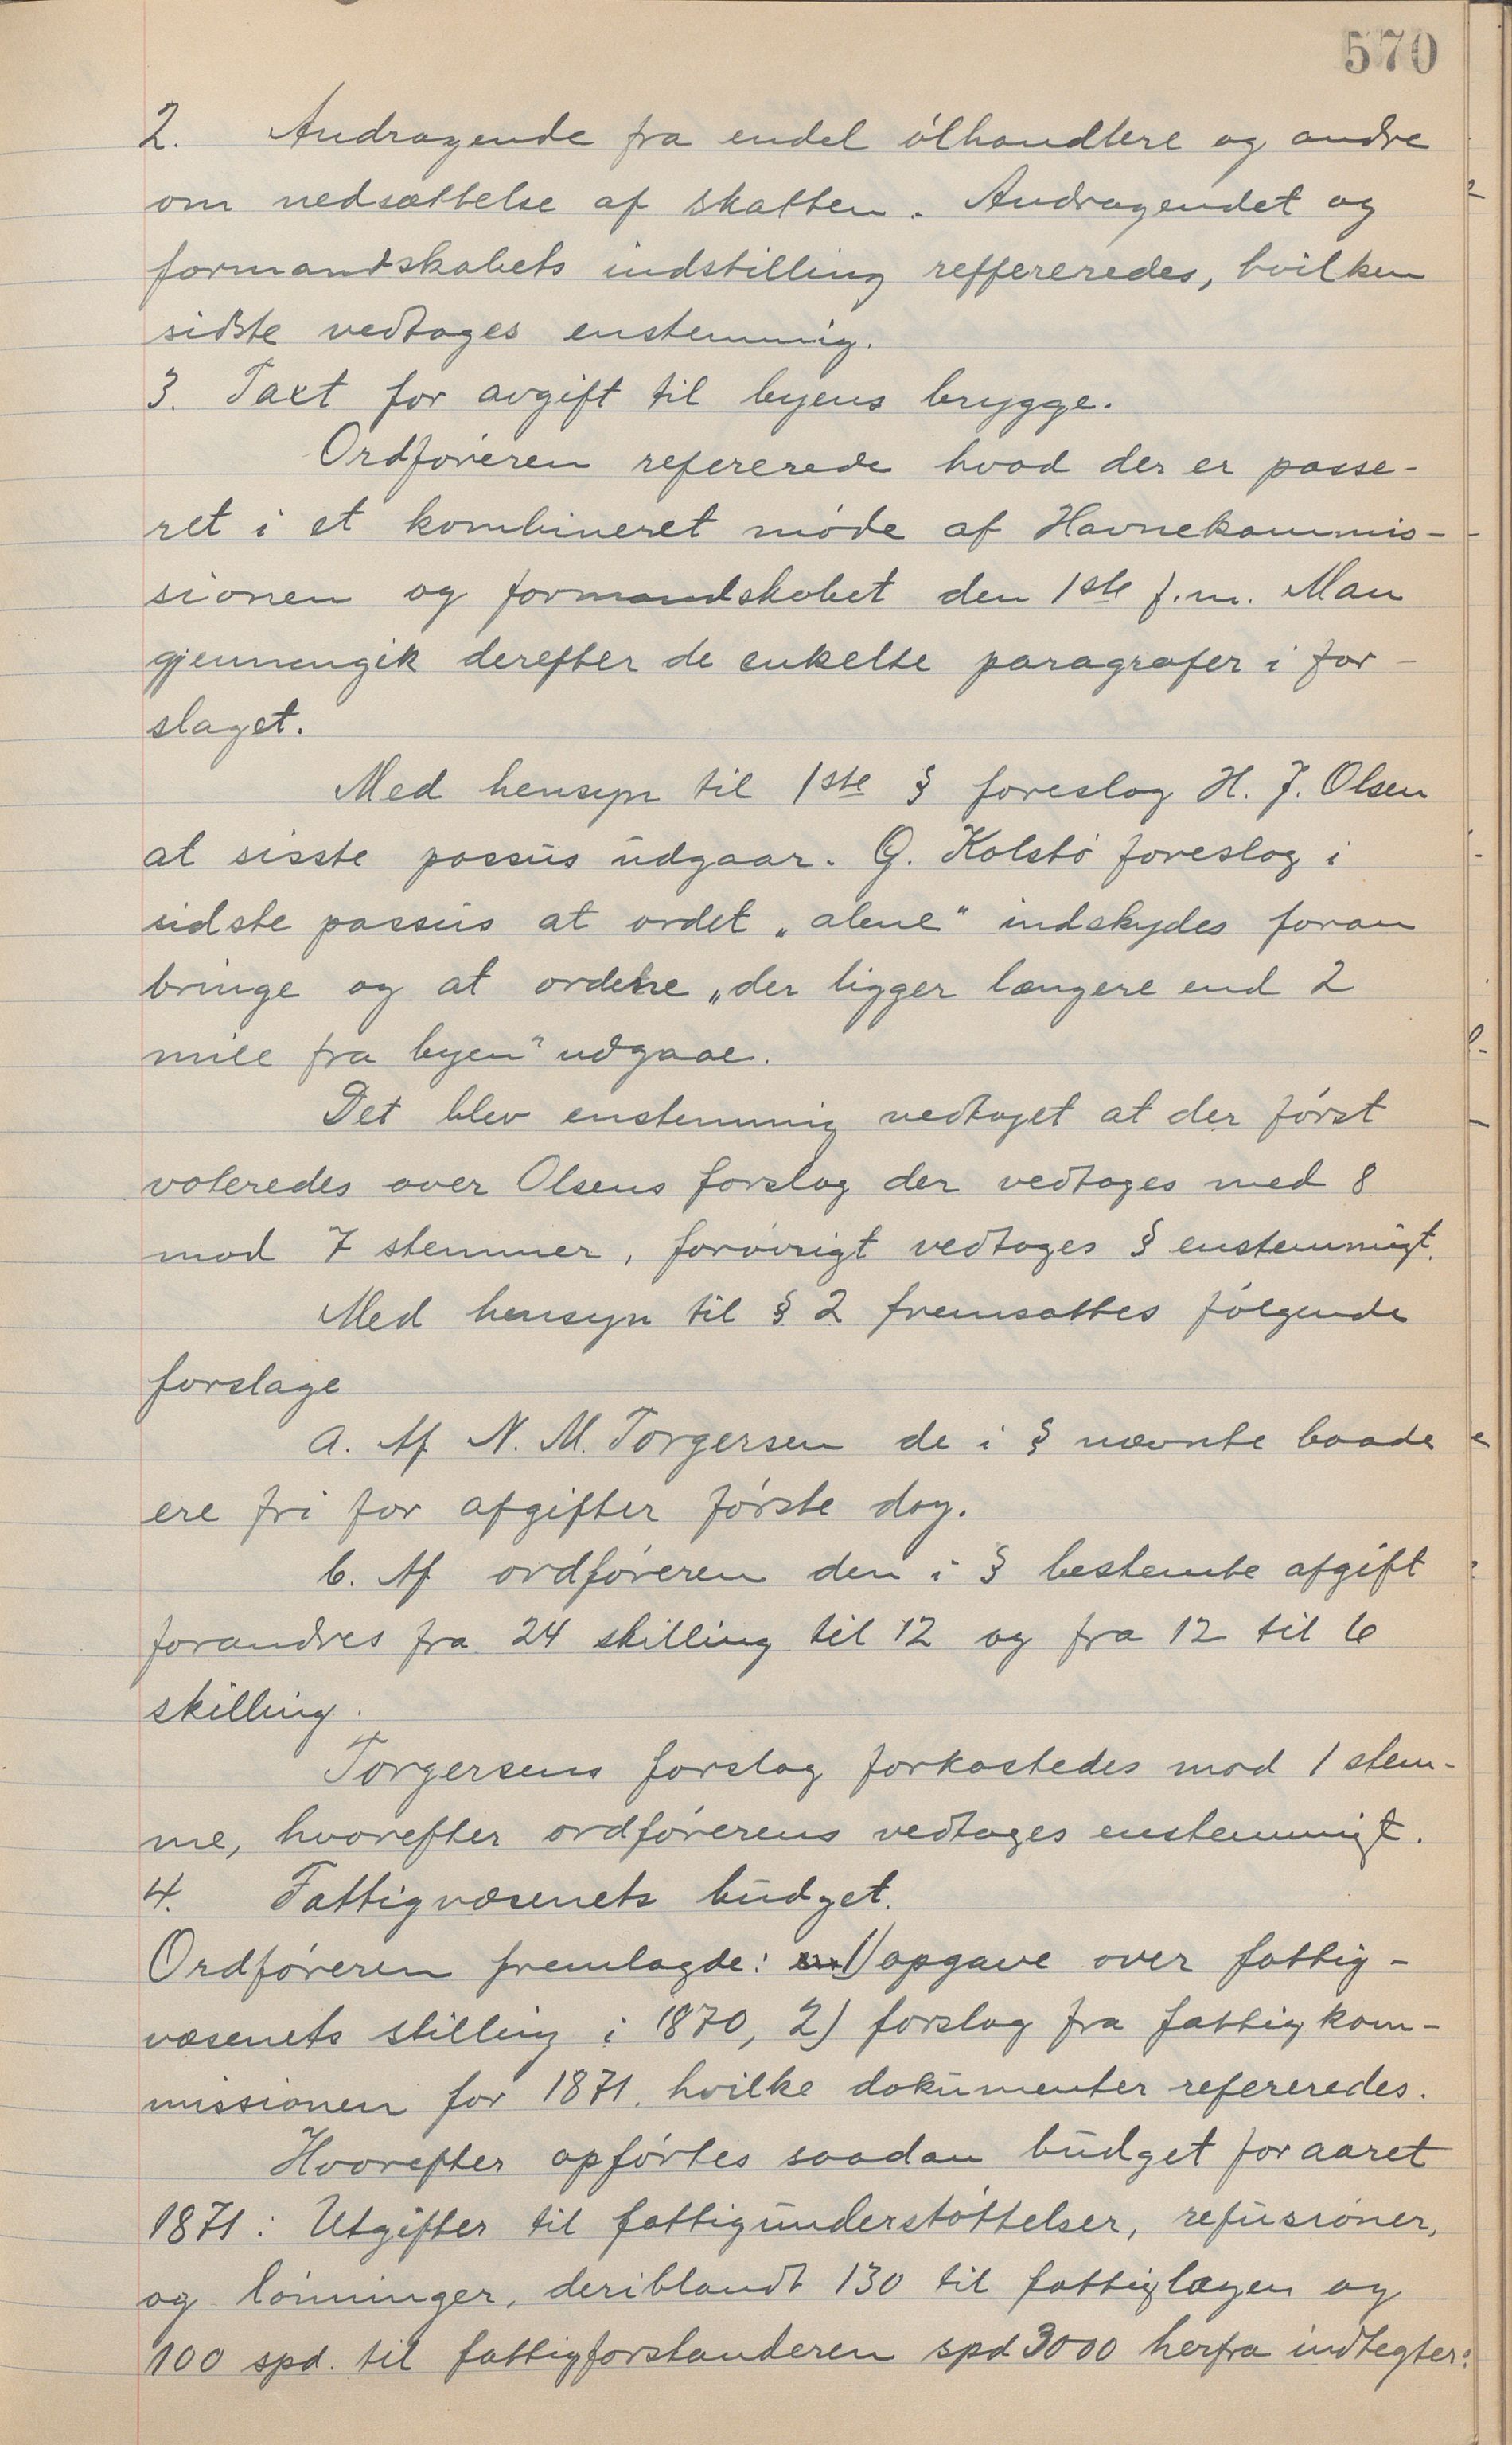 570
2. Andragende fra endel ólhandlere og andre
om nedsættelse af skatten. Andragendet og
formandskabets indstilling reffereredes, hvilken
sidste vedtoges enstemmig.
3. Taxt for avgift til byens brygge.
Ordfóreren refererede hvad der er passe-
ret i et kombineret móde af Havnekommis-
sionen og formandskabet den 1ste f.m. Man
gjennemgik derefter de enkelte paragrafer i for-
slaget.
Med hensyn til 1ste § foreslog H. J. Olsen
at sisste passus udgaar. G. Kolstó foreslog i
sidste passus at ordet „alene" indskydes foran
bringe og at ordene „der ligger længere end 2
mile fra byen" udgaae.
Det blev enstemmig vedtaget at der fórst
voteredes over Olsens forslag der vedtoges med 8
mod 7 stemmer, foróvrigt vedtoges § enstemmigt.
Med hensyn til § 2 fremsattes fólgende
forslage
a. Af N. M. Torgersen de i § nævnte baade
ere fri for afgifter fórste dag.
b. Af ordfóreren den i § bestemte afgift
forandres fra 24 skilling til 12 og fra 12 til 6
skilling.
Torgersens forslag forkastedes mod 1 stem-
me, hvorefter ordfórerens vedtoges enstemmigt.
4. Fattigvæsenets budget.
Ordfóreren fremlagde: 1) opgave over fattig-
væsenets stilling i 1870, 2) forslag fra fattigkom-
missionen for 1871. hvilke dokumenter refereredes.
Hvorefter opfórtes saadan budget for aaret
1871: Utgifter til fattigunderstóttelser, refusioner,
og lónninger, deriblandt 130 til fattiglægen og
100 spd. til fattigforstanderen spd 3000 herfra indtegter: